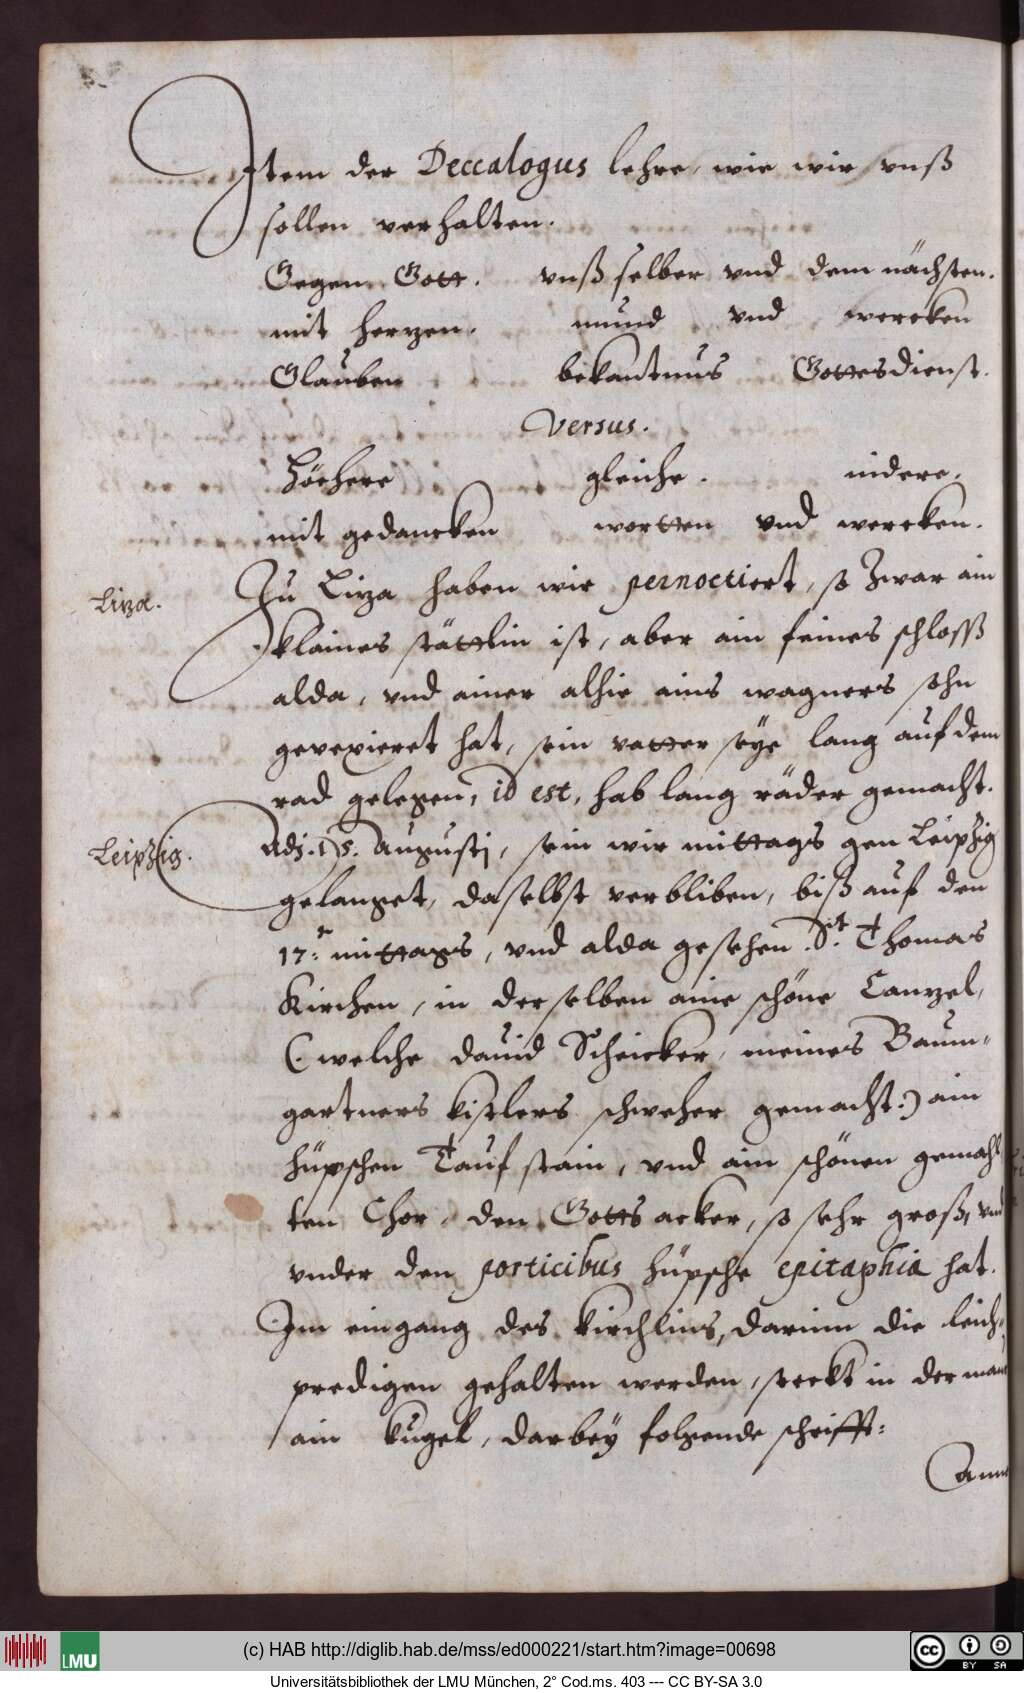 Item der Deccalogus lehre, wie wir vnß
sollen verhalten.
Gegen Gott. vnß selber vnd dem nächsten.
mit herzen. mund vnd wercken
Glauben bekantnus Gottesdienst.
Versus.
Höehere gleiche. nidere.
mit gedancken wortten vnd wercken.
Liza. Zu Liza haben wir pernoctiert, so Zwar ain
klaines stättlin ist, aber ain feines schlosß
alda, vnd ainer alhie ains wagners sohn
gevexieret hat, sein vatter seye lang auf dem
rad gelegen, id est, hab lang räder gemacht.
Leipzig. Adj. 15. Augustj, sein wir mittags gen Leipzig
gelanget, daselbst verbliben, biß auf den
17: mittags, vnd alda gesehen St. Thomas
Kirchen, in derselben aine schöne Canzel,
(: welche dauid Scheicker, meines Baum-
gartners kistlers schweher gemacht:) ain
hüpschen Tauf stain, vnd ain schönen gemahl
ten Chor, den Gotts acker, so sehr groß, vnd
vnder den porticibus hüpsche epitaphia hat.
Im eingang des kirchlins, darinn die leich-
predigen gehalten werden, steckt in der maur
ain kugel, darbey folgende schrifft:
Anno
(c) HAB http://diglib.hab.de/mss/ed000221/start.htm?image=00698
LMU
BY SA
Universitätsbibliothek der LMU München, 2° Cod.ms. 403 --- CC BY-SA 3.0